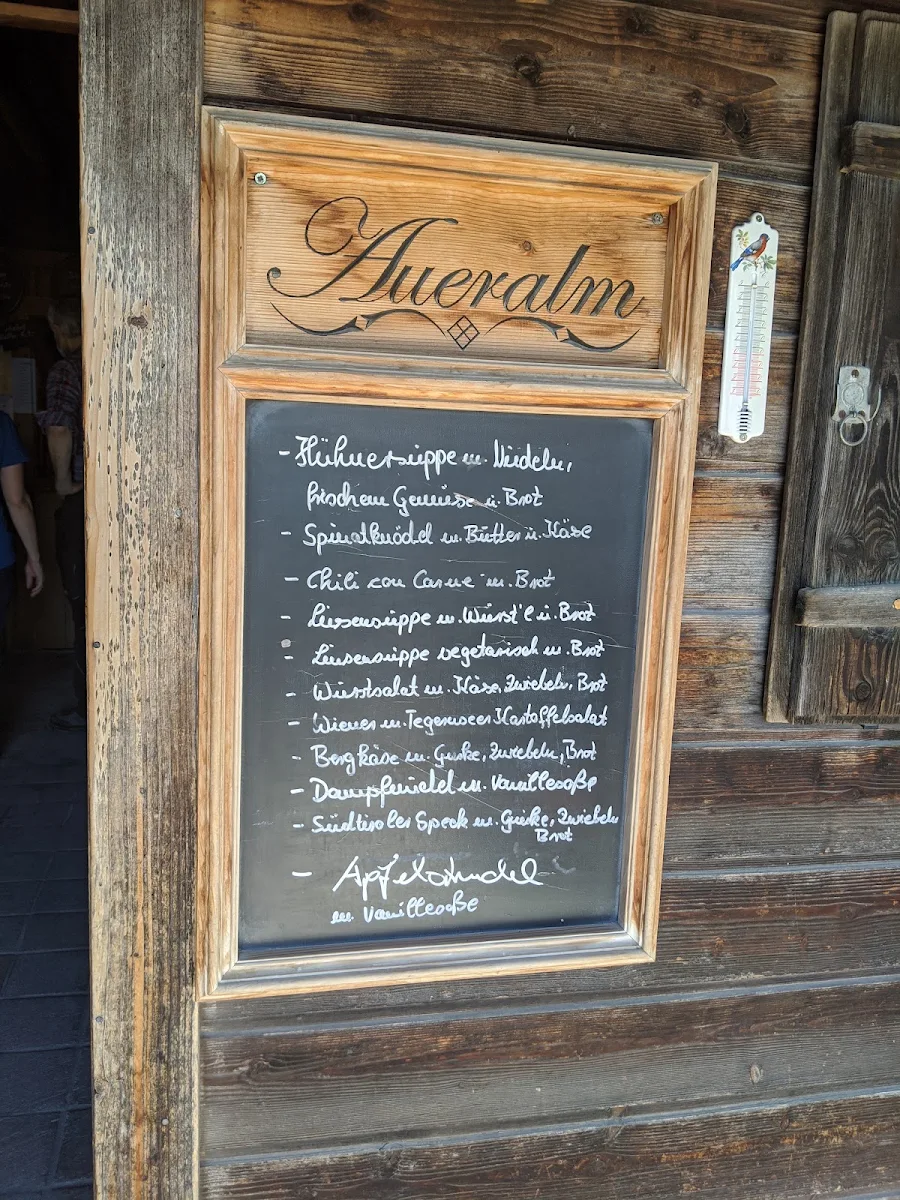 Aueralm
- Hühnersuppe m. Nudeln,
frischem Gemüse u. Brot
- Spinatknödel m. Butter u. Käse
- Chili con Carne m. Brot
- Linsensuppe m. Würst'l u. Brot
- Linsensuppe vegetarisch m. Brot
- Wurstsalat m. Käse, Zwiebeln, Brot
- Wiener m. Tegernseer Kartoffelsalat
- Bergkäse m. Gurke, Zwiebeln, Brot
- Dampfnudel m. Vanillesoße
- Südtiroler Speck m. Gurke, Zwiebeln
Brot
- Apfelstrudel
m. Vanillesoße